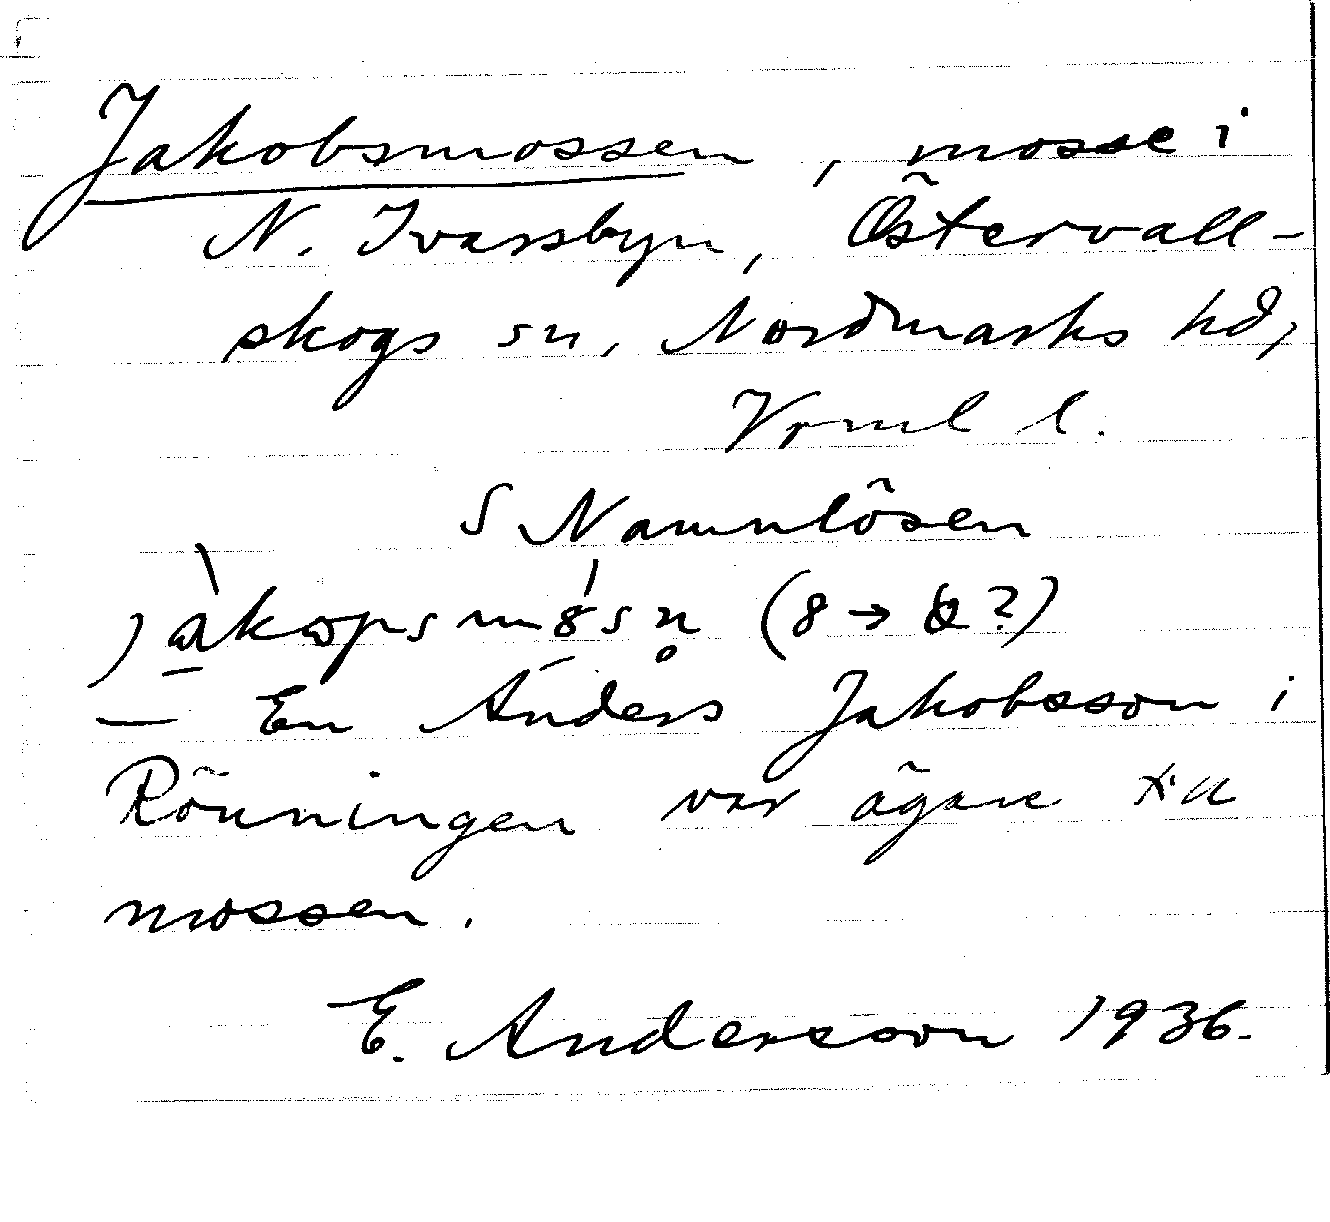 Jakobsmossen, mosse i
N. Ivarsbyn, Östervall-
skogs sn, Nordmarks hd,
Vrml l.
S Namnlösen
jàkopsm8́sn̥ (8 → ?)
— En Anders Jakobsson i
Rönningen var ägare t. a
mossen.
E. Andersson 1936.